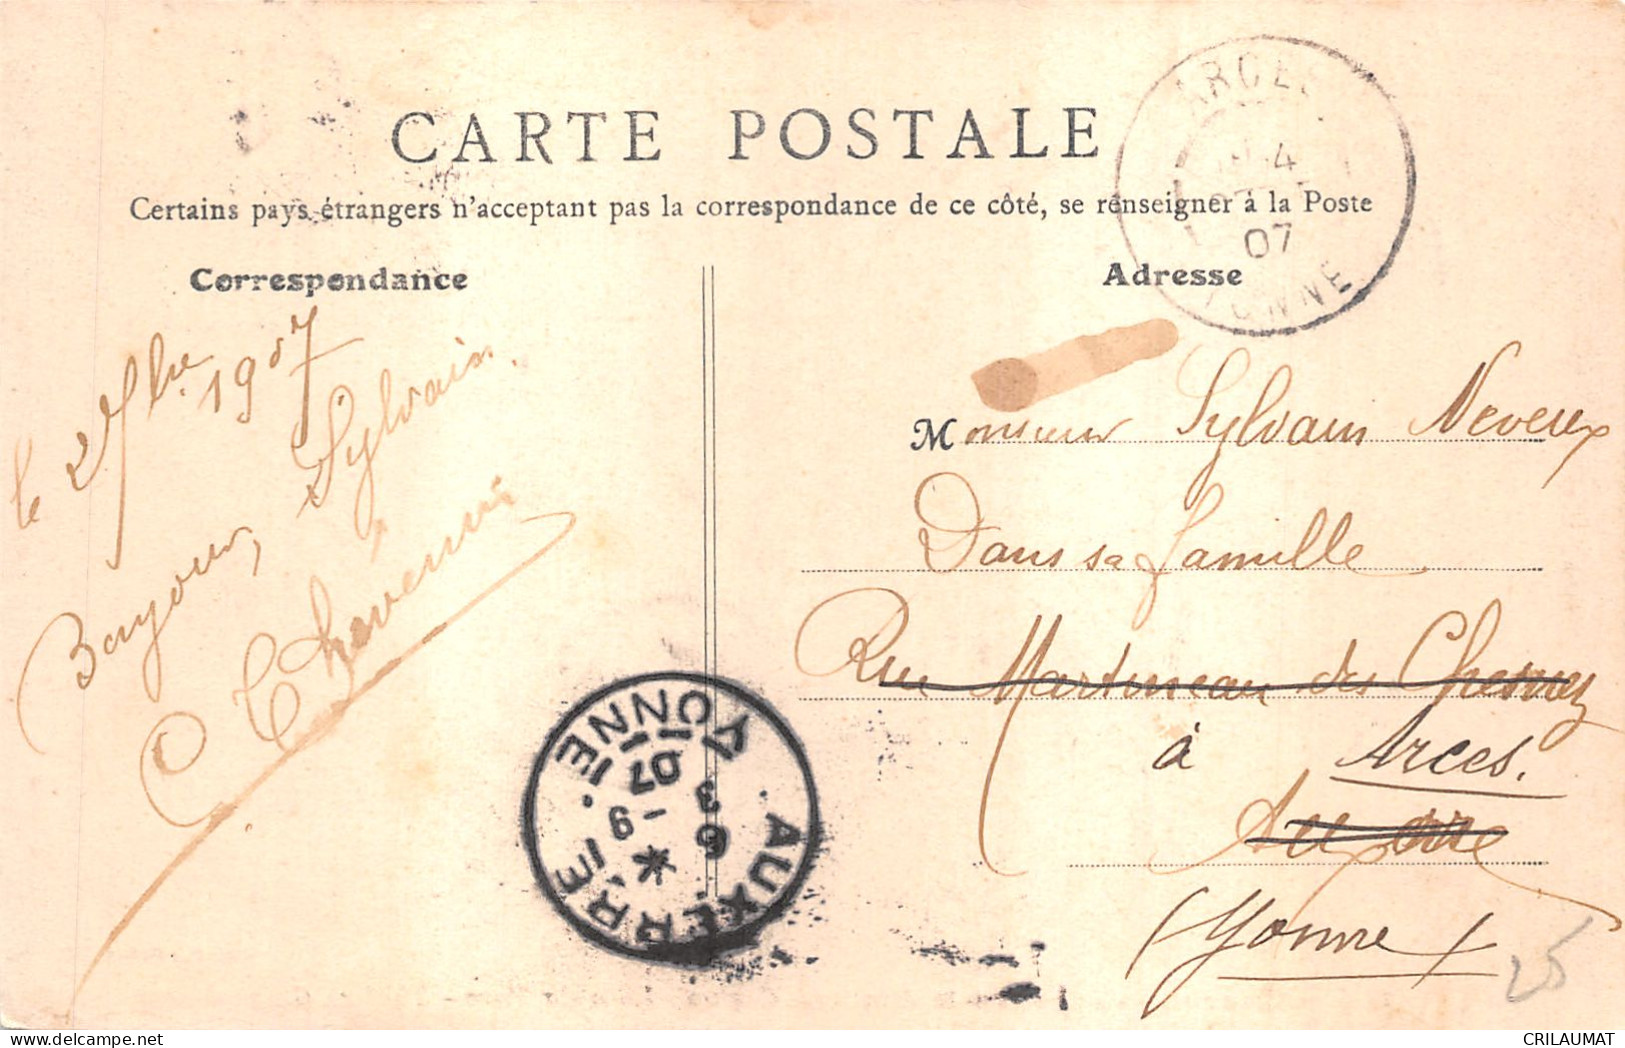 CARTE POSTALE
Certains pays étrangers n'acceptent pas la correspondance de ce côté, se renseigner à la Poste
Correspondance
Adresse
ARCES
4
07
YONNE
le 2 7bre 1907
Bonjour, Sylvain
Monsieur Sylvain Neveux
Dans sa famille
Rue Martineau des Chesnez
à Arces.
Auxerre
(Yonne)
AUXERRE
YONNE
6
3 - 9
07
25
CRILAUMAT